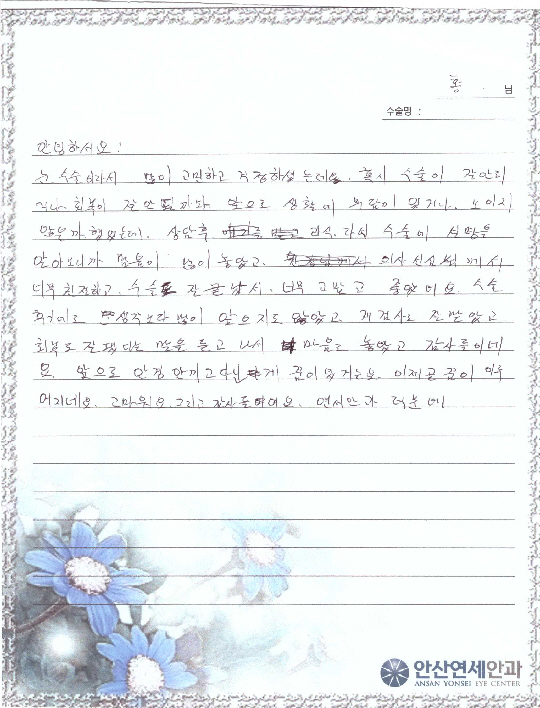 홍 님
수술명 :
안녕하세요!
눈 수술이라서 많이 고민하고 걱정하였는데요. 혹시 수술이 잘안되
거나 회복이 잘 안될까봐 앞으로 생활에 부담이 있거나, 보이지
않을까 했었는데. 상담후 다시 수술에 설명을
알아보니까 마음이 많이 놓았고. 의사 선생님 께서
너무 친절하고. 수술도 잘 끝나서. 너무 고맙고 좋았네요. 수술
후에도 생각보다 많이 앞으지도 않았고. 개 검사도 잘 받았고
회복도 잘 됐다는 말을 듣고 나서 마음도 놓았고 감사를이네
요. 앞으로 안경 안끼고다닌 게 꿈이었거든요. 이제곧 꿈이 이루
어지네요. 고마워요. 그리고 감사들여요. 연세안과 덕분에
안산연세안과
ANSAN YONSEI EYE CENTER